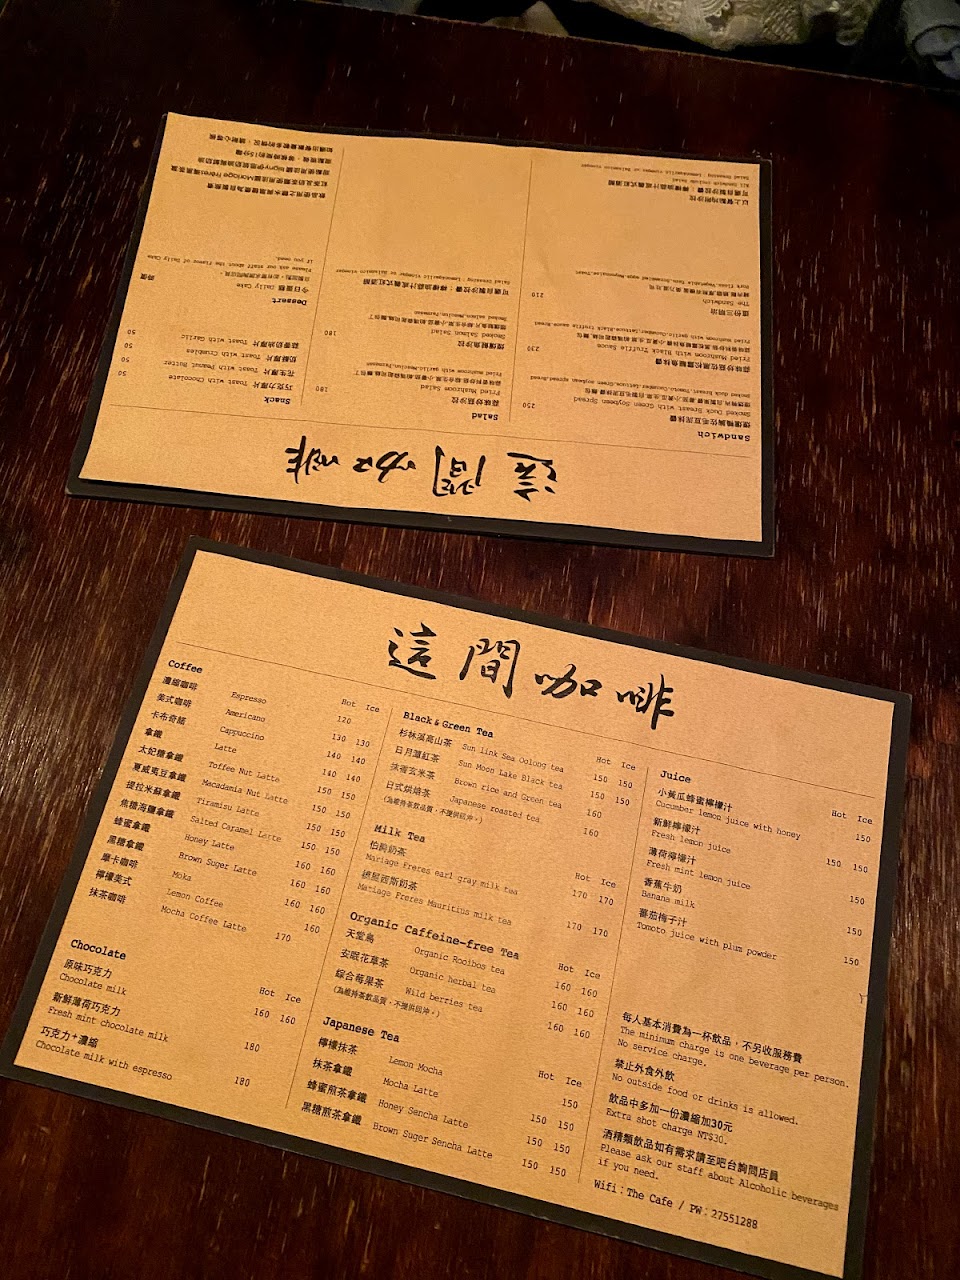 這間咖啡
Sandwich
煙燻鴨胸佐毛豆泥抹醬
Smoked Duck Breast with Green Soybean Spread
250
Fried Mushroom with Black Truffle Sauce
230
這份三明治
The Sandwich
210
以上餐點均附沙拉
Salad
蒜味炒菇沙拉
Fried Mushroom Salad
180
煙燻鮭魚沙拉
Smoked Salmon Salad
180
Snack
巧克力厚片 Toast with Chocolate
50
花生厚片 Toast with Peanut Butter
50
奶酥厚片 Toast with Crumbles
50
蒜香奶油厚片 Toast with Garlic
50
Dessert
今日蛋糕 Daily Cake
時價
Please ask our staff about the flavor of Daily Cake
if you need.
這間咖啡
Coffee
Hot Ice
濃縮咖啡 Espresso 120
美式咖啡 Americano 130 130
卡布奇諾 Cappuccino 140 140
拿鐵 Latte 140 140
太妃糖拿鐵 Toffee Nut Latte 150 150
夏威夷豆拿鐵 Macadamia Nut Latte 150 150
提拉米蘇拿鐵 Tiramisu Latte 150 150
焦糖海鹽拿鐵 Salted Caramel Latte 160 160
蜂蜜拿鐵 Honey Latte 160 160
黑糖拿鐵 Brown Suger Latte 160 160
摩卡咖啡 Moka 160 160
檸檬美式 Lemon Coffee 170
抹茶咖啡 Mocha Coffee Latte
Chocolate
Hot Ice
原味巧克力 160 160
Chocolate milk
新鮮薄荷巧克力 180
Fresh mint chocolate milk
巧克力+濃縮 180
Chocolate milk with espresso
Black & Green Tea
Hot Ice
杉林溪高山茶 Sun link Sea Oolong tea 150 150
日月潭紅茶 Sun Moon Lake Black tea 150 150
抹茶玄米茶 Brown rice and Green tea 160
日式烘焙茶 Japanese roasted tea 160
(為維持茶飲品質，不提供回沖。)
Milk Tea
Hot Ice
伯爵奶茶 170 170
Mariage Freres earl gray milk tea
模里西斯奶茶 170 170
Matiage Freres Mauritius milk tea
Organic Caffeine-free Tea
Hot Ice
天堂鳥 Organic Rooibos tea 160 160
安眠花草茶 Organic herbal tea 160 160
綜合莓果茶 Wild berries tea 160 160
(為維持茶飲品質，不提供回沖。)
Japanese Tea
Hot Ice
檸檬抹茶 Lemon Mocha 150
抹茶拿鐵 Mocha Latte 150 150
蜂蜜煎茶拿鐵 Honey Sencha Latte 150 150
黑糖煎茶拿鐵 Brown Suger Sencha Latte 150 150
Juice
Hot Ice
小黃瓜蜂蜜檸檬汁 150
Cucumber lemon juice with honey
新鮮檸檬汁 150 150
Fresh lemon juice
薄荷檸檬汁 150
Fresh mint lemon juice
香蕉牛奶 150
Banana milk
蕃茄梅子汁 150
Tomoto juice with plum powder
每人基本消費為一杯飲品，不另收服務費
The minimum charge is one beverage per person.
No service charge.
禁止外食外飲
No outside food or drinks is allowed.
飲品中多加一份濃縮加30元
Extra shot charge NT$30.
酒精類飲品如有需求請至吧台詢問店員
Please ask our staff about Alcoholic beverages
if you need.
Wifi：The Cafe / PW：27551288